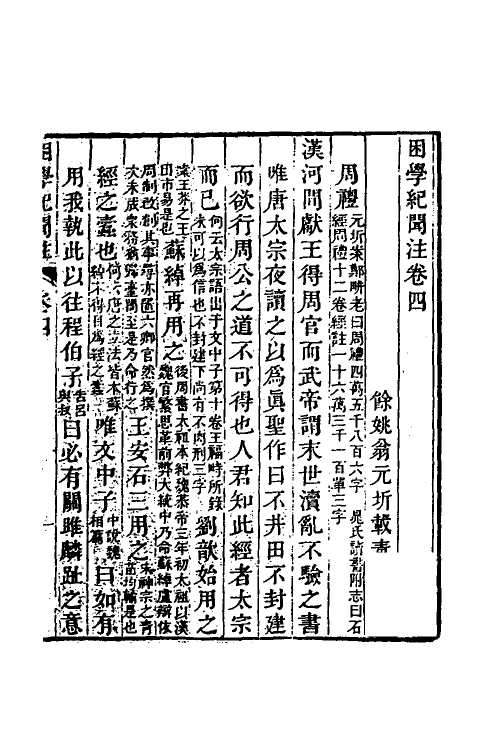 困學紀聞注卷四
餘姚翁元圻載青
周禮元圻案鄭畊老曰周禮四萬五千八百六字 晁氏讀書附志曰石經周禮十二卷經註一十六萬三千一百單三字
漢河間獻王得周官而武帝謂末世瀆亂不驗之書
唯唐太宗夜讀之以為眞聖作曰不井田不封建
而欲行周公之道不可得也人君知此經者太宗
而已何云太宗語出于文中子第十卷王福畤所錄未可以為信也不封建下尚有不肉刑三字劉歆始用之
蘇綽再用之後周書太祖本紀魏恭帝三年初太祖以漢魏官繁思革前弊大統中乃命蘇綽盧辯依周制改創其事
王安石三用之
經之蠹也
唯文中子中說魏相篇曰如有
用我執此以往程伯子告呂與叔曰必有關雎麟趾之意
困學紀聞注 卷四